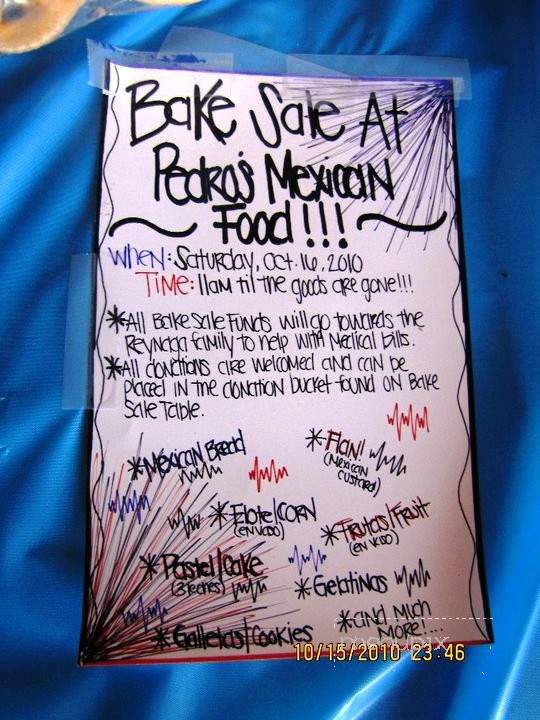 Bake Sale At
Pedro's Mexican
Food!!!
When: Saturday, Oct. 16, 2010
Time: 11am til the goods are gone!!!
*All Bake Sale Funds will go towards the
Reynaga family to help with Medical bills.
*All donations are welcomed and can be
placed in the donation bucket found on Bake
Sale Table.
*Mexican Bread
*Flan!
(Mexican
custard)
*Elote/CORN
(EN VASO)
*Frutas/Fruit
(EN VASO)
*Pastel/Cake
(3 leches)
*Gelatinas
*Galletas/Cookies
*and Much
MORE!...
menupix
10/15/2010 23:46